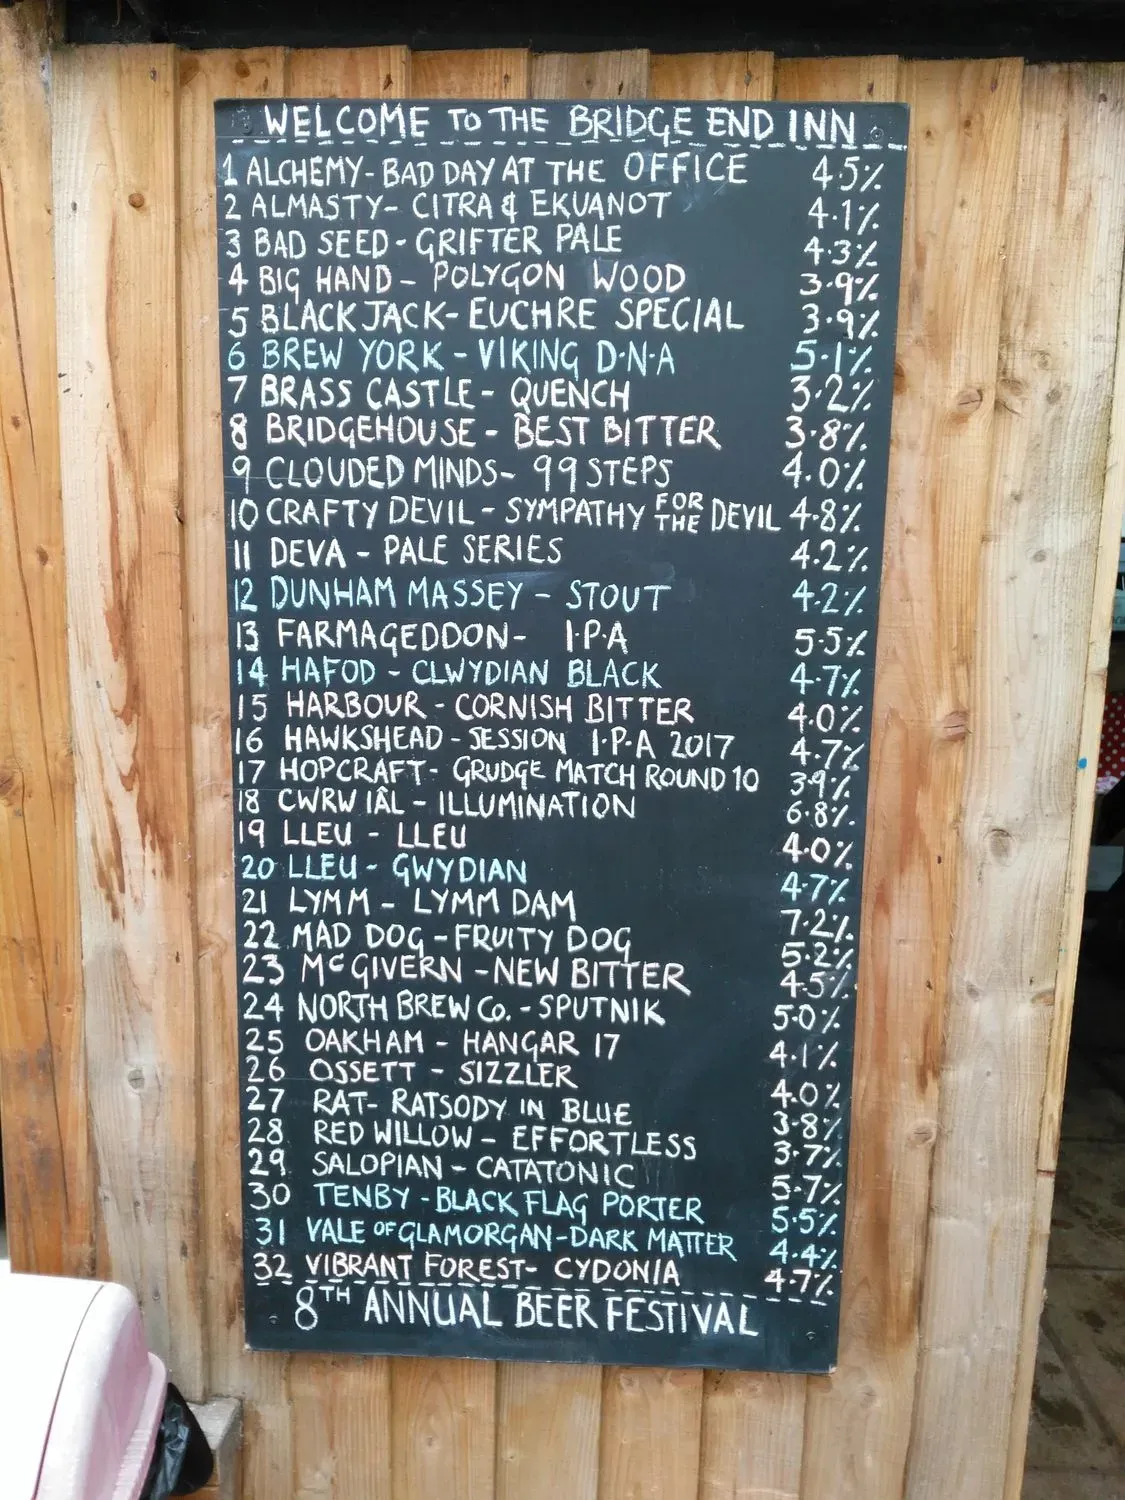 WELCOME TO THE BRIDGE END INN
1 ALCHEMY- BAD DAY AT THE OFFICE 4.5%
2 ALMASTY- CITRA & EKUANOT 4.1%
3 BAD SEED - GRIFTER PALE 4.3%
4 BIG HAND - POLYGON WOOD 3.9%
5 BLACKJACK- EUCHRE SPECIAL 3.9%
6 BREW YORK - VIKING D·N·A 5.1%
7 BRASS CASTLE - QUENCH 3.2%
8 BRIDGEHOUSE - BEST BITTER 3.8%
9 CLOUDED MINDS- 99 STEPS 4.0%
10 CRAFTY DEVIL - SYMPATHY FOR THE DEVIL 4.8%
11 DEVA - PALE SERIES 4.2%
12 DUNHAM MASSEY - STOUT 4.2%
13 FARMAGEDDON- I·P·A 5.5%
14 HAFOD - CLWYDIAN BLACK 4.7%
15 HARBOUR - CORNISH BITTER 4.0%
16 HAWKSHEAD - SESSION I·P·A 2017 4.7%
17 HOPCRAFT- GRUDGE MATCH ROUND 10 3.9%
18 CWRW IÂL - ILLUMINATION 6.8%
19 LLEU - LLEU 4.0%
20 LLEU - GWYDIAN 4.7%
21 LYMM - LYMM DAM 7.2%
22 MAD DOG - FRUITY DOG 5.2%
23 McGIVERN - NEW BITTER 4.5%
24 NORTH BREW Co. - SPUTNIK 5.0%
25 OAKHAM - HANGAR 17 4.1%
26 OSSETT - SIZZLER 4.0%
27 RAT- RATSODY IN BLUE 3.8%
28 RED WILLOW - EFFORTLESS 3.7%
29 SALOPIAN - CATATONIC 5.7%
30 TENBY - BLACK FLAG PORTER 5.5%
31 VALE OF GLAMORGAN - DARK MATTER 4.4%
32 VIBRANT FOREST- CYDONIA 4.7%
8TH ANNUAL BEER FESTIVAL